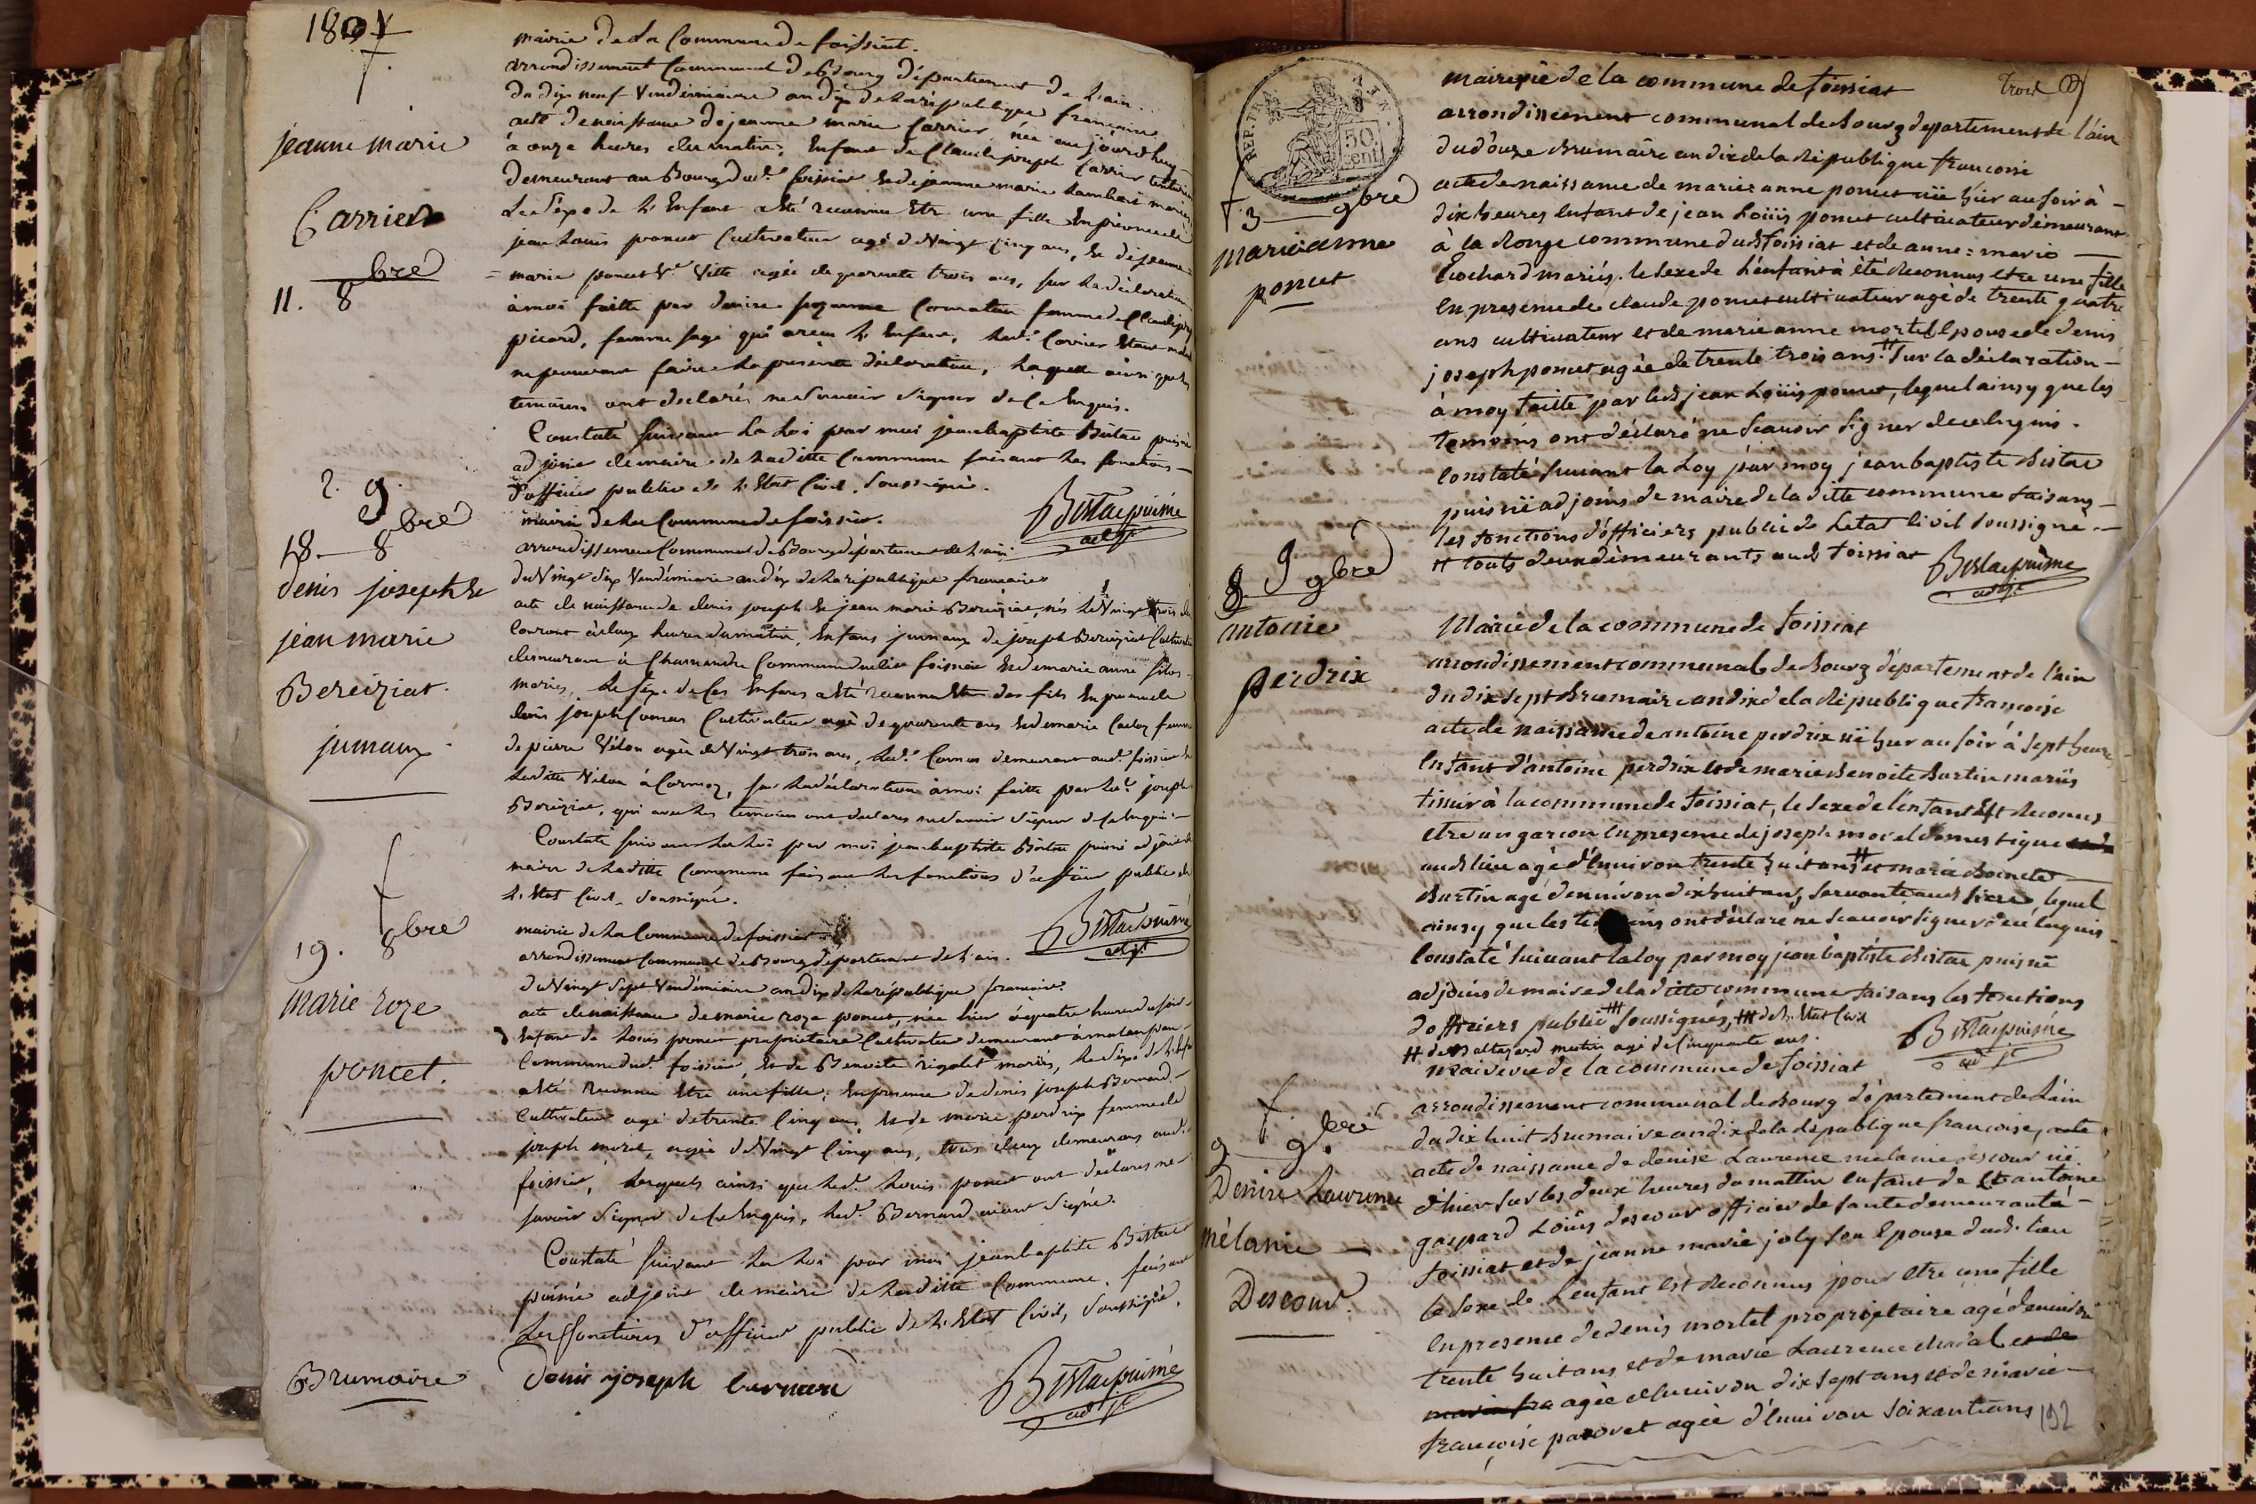 1801
jeanne marie
Carrier
11. 8bre
mairie de la Commune de foissiat.
arrondissement Communal de Bourg département de l'ain.
du dix neuf Vendémiaire an dix de la république française
acte de naissance de jeanne marie Carrier née aujourd'huy
à onze heures du matin, Enfant de Claude joseph Carrier
demeurant au Bourg dud. foissiat et de jeanne marie mariés
Le sexe de l'Enfant a été reconnu Etre une fille En présence de
jean Louis poncet Cultivateur agé de Vingt Cinq ans, et de jeanne
= marie poncet Ve Vitte agée de quarante trois ans, sur la déclaration
à moi faitte par denise suzanne femme de Claude
picard, femme sage qui a reçu l'Enfant, led. Carrier Etant
ne pouvant faire la présente déclaration, laquelle ainsi que les
témoins ont déclarés ne savoir signer de ce Enquis.
Constaté suivant la Loi par moi jean baptiste Bistac puisné
adjoint de maire de laditte Commune faisant les fonctions
d'officier public de l'Etat Civil, soussigné.
Bistac puisné
adjt
2. 9.
18 8bre
denis joseph et
jean marie
Bereiziat.
jumaux
mairie de la Commune de foissiat.
arrondissement Communal de Bourg département de l'ain.
du Vingt six Vendémiaire an dix de la république française
acte de naissance de denis joseph et jean marie Bereiziat, nés le Vingt trois du
Courant à deux heures du matin, Enfans jumaux de joseph Bereiziat Cultivateur
demeurant à Commune dudit foissiat et de marie anne
mariés, le sexe de Ces Enfans a été reconnu Etre des fils En présence de
denis joseph Comas Cultivateur agé de quarante ans et de marie femme
de pierre Vélon agée de Vingt trois ans, led. Comas demeurant aud. foissiat et
laditte Vélon à Cormoz, sur la déclaration à moi faitte par led. joseph
Bereiziat, qui avec les témoins ont déclarés ne savoir signer de Ce Enquis.
Constaté suivant la Loi par moi jean baptiste Bistac puisné adjoint de
maire de laditte Commune faisant les fonctions d'officier public de
l'Etat Civil soussigné.
Bistac puisné
adjt
19. 8bre
marie roze
poncet.
mairie de la Commune de foissiat
arrondissement Communal de Bourg département de l'ain.
du Vingt sept Vendémiaire an dix de la république française
acte de naissance de marie roze poncet, née hier à quatre heures du soir
Enfant de Louis poncet propriétaire Cultivateur demeurant à
Commune dud. foissiat, et de Benoite rigolet mariés, Le Sexe de l'Enfant
a été reconnu Etre une fille; En présence de denis joseph Bernard
Cultivateur agé de trente Cinq ans, et de marie perdrix femme de
joseph morel, agée de Vingt Cinq ans, tous deux demeurans aud.
foissiat, lesquels ainsi que led. Louis poncet ont déclarés ne
savoir signer de Ce Enquis, led. Bernard ayant signé.
Constaté suivant la Loi par moi jean baptiste Bistac
puisné adjoint de maire de laditte Commune, faisant
Les fonctions d'officier public de l'Etat Civil, soussigné.
Brumaire
Denis joseph bernard
Bistac puisné
adjt
REP. FRA.
50 cent
trois
3 9bre
marie anne
poncet
mairerie de la commune de foissiat
arrondissement communal de bourg departement de l'ain
du douze brumaire an dix de la république francoise
acte de naissance de marie anne poncet née hier au soir à
dix heures enfant de jean Loüis poncet cultivateur demeurant
à la Rouge commune dud. foissiat et de anne = marie
Cochard mariés. le sexe de l'enfant à été reconnus etre une fille
en presence de claude poncet cultivateur agé de trente quatre
ans cultivateur et de marie anne mortel épouse de denis
joseph poncet agée de trente trois ans # sur la déclaration
à moy faitte par led. jean Loüis poncet, lequel ainsy que les
temoins ont déclaré ne scavoir signer de ce enquis.
Constaté suivant la Loy par moy jean baptiste bistac
puisné adjoins de maire de la ditte commune faisans
les fonctions d'officiers public de Letat Civil soussigné.
# touts deux demeurants aud. foissiat
Bistac puisné
adjt
8. 9 9bre
antoine
perdrix
Mairie de la commune de foissiat
arrondissement communal de bourg département de l'ain
du dix sept brumaire an dix de la république francoise
acte de naissance de antoine perdrix né hier au soir à sept heure
Enfant d'antoine perdrix et de marie benoite burtin mariés
tissier à la commune de foissiat, le sexe de l'enfant Est reconnus
etre un garcon en presence de joseph morel domestique
aud. lieu agé d'environ trente huit ans ## et marie benoite
Burtin agé denviron dix huit ans, servante aud. lieu lequel
ainsy que les temoins ont declaré ne scavoir signer de ce enquis.
Constaté suivant la loy par moy jean baptiste Bistac puisné
adjoins de maire de la ditte commune faisans les fonctions
d'officiers public ### soussignés, ### de L'Etat Civil
## de Baltazard mutin agé de Cinquante ans.
Bistac puisné
adjt
9 9bre
Denise Laurence
mélanie
Descour.
maireirie de la commune de foissiat
arrondissement communal de bourg département de L'ain
du dix huit brumaire an dix de la république francoise, acte
acte de naissance de denise Laurence melanie descour né
d'hier sur les deux heures du mattin enfant de antoine
gaspard Loüis descour officier de santé demeurant à
foissiat et de jeanne marie joly son épouse dud. lieu
le sexe de L'enfant est reconnus pour etre une fille
en presence de denis mortel propriétaire agé denviron
trente huit ans et de marie Laurence chadal et de
agée d'environ dix sept ans et de marie
francoise agée d'environ soixante ans
192